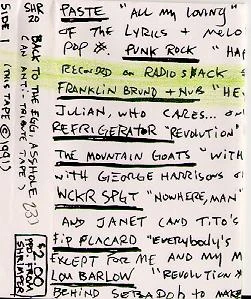 SIDE 1 (THIS TAPE @ 1991)
SHR 20 BACK TO THE EGG, ASSHOLE
(AN ANTI-TRIBUTE TAPE)
$2.00 PPD FROM SHRIMPER
PASTE "ALL MY LOVING"
OF THE LYRICS + MELO
POP PUNK ROCK "HA
RECORDED ON RADIO SHACK
FRANKLIN BRUNO + NUB "HE
JULIAN, WHO CARES... ON
REFRIGERATOR "REVOLUTION
THE MOUNTAIN GOATS "WITH
WITH GEORGE HARRISONS O
WCKR SPGT "NOWHERE, MAN
AND JANET (AND TITO'S
FIP PLACARD "EVERYBODY'S
EXCEPT FOR ME AND MY M
LOU BARLOW "REVOLUTION
BEHIND SEBADOH TO MAKE